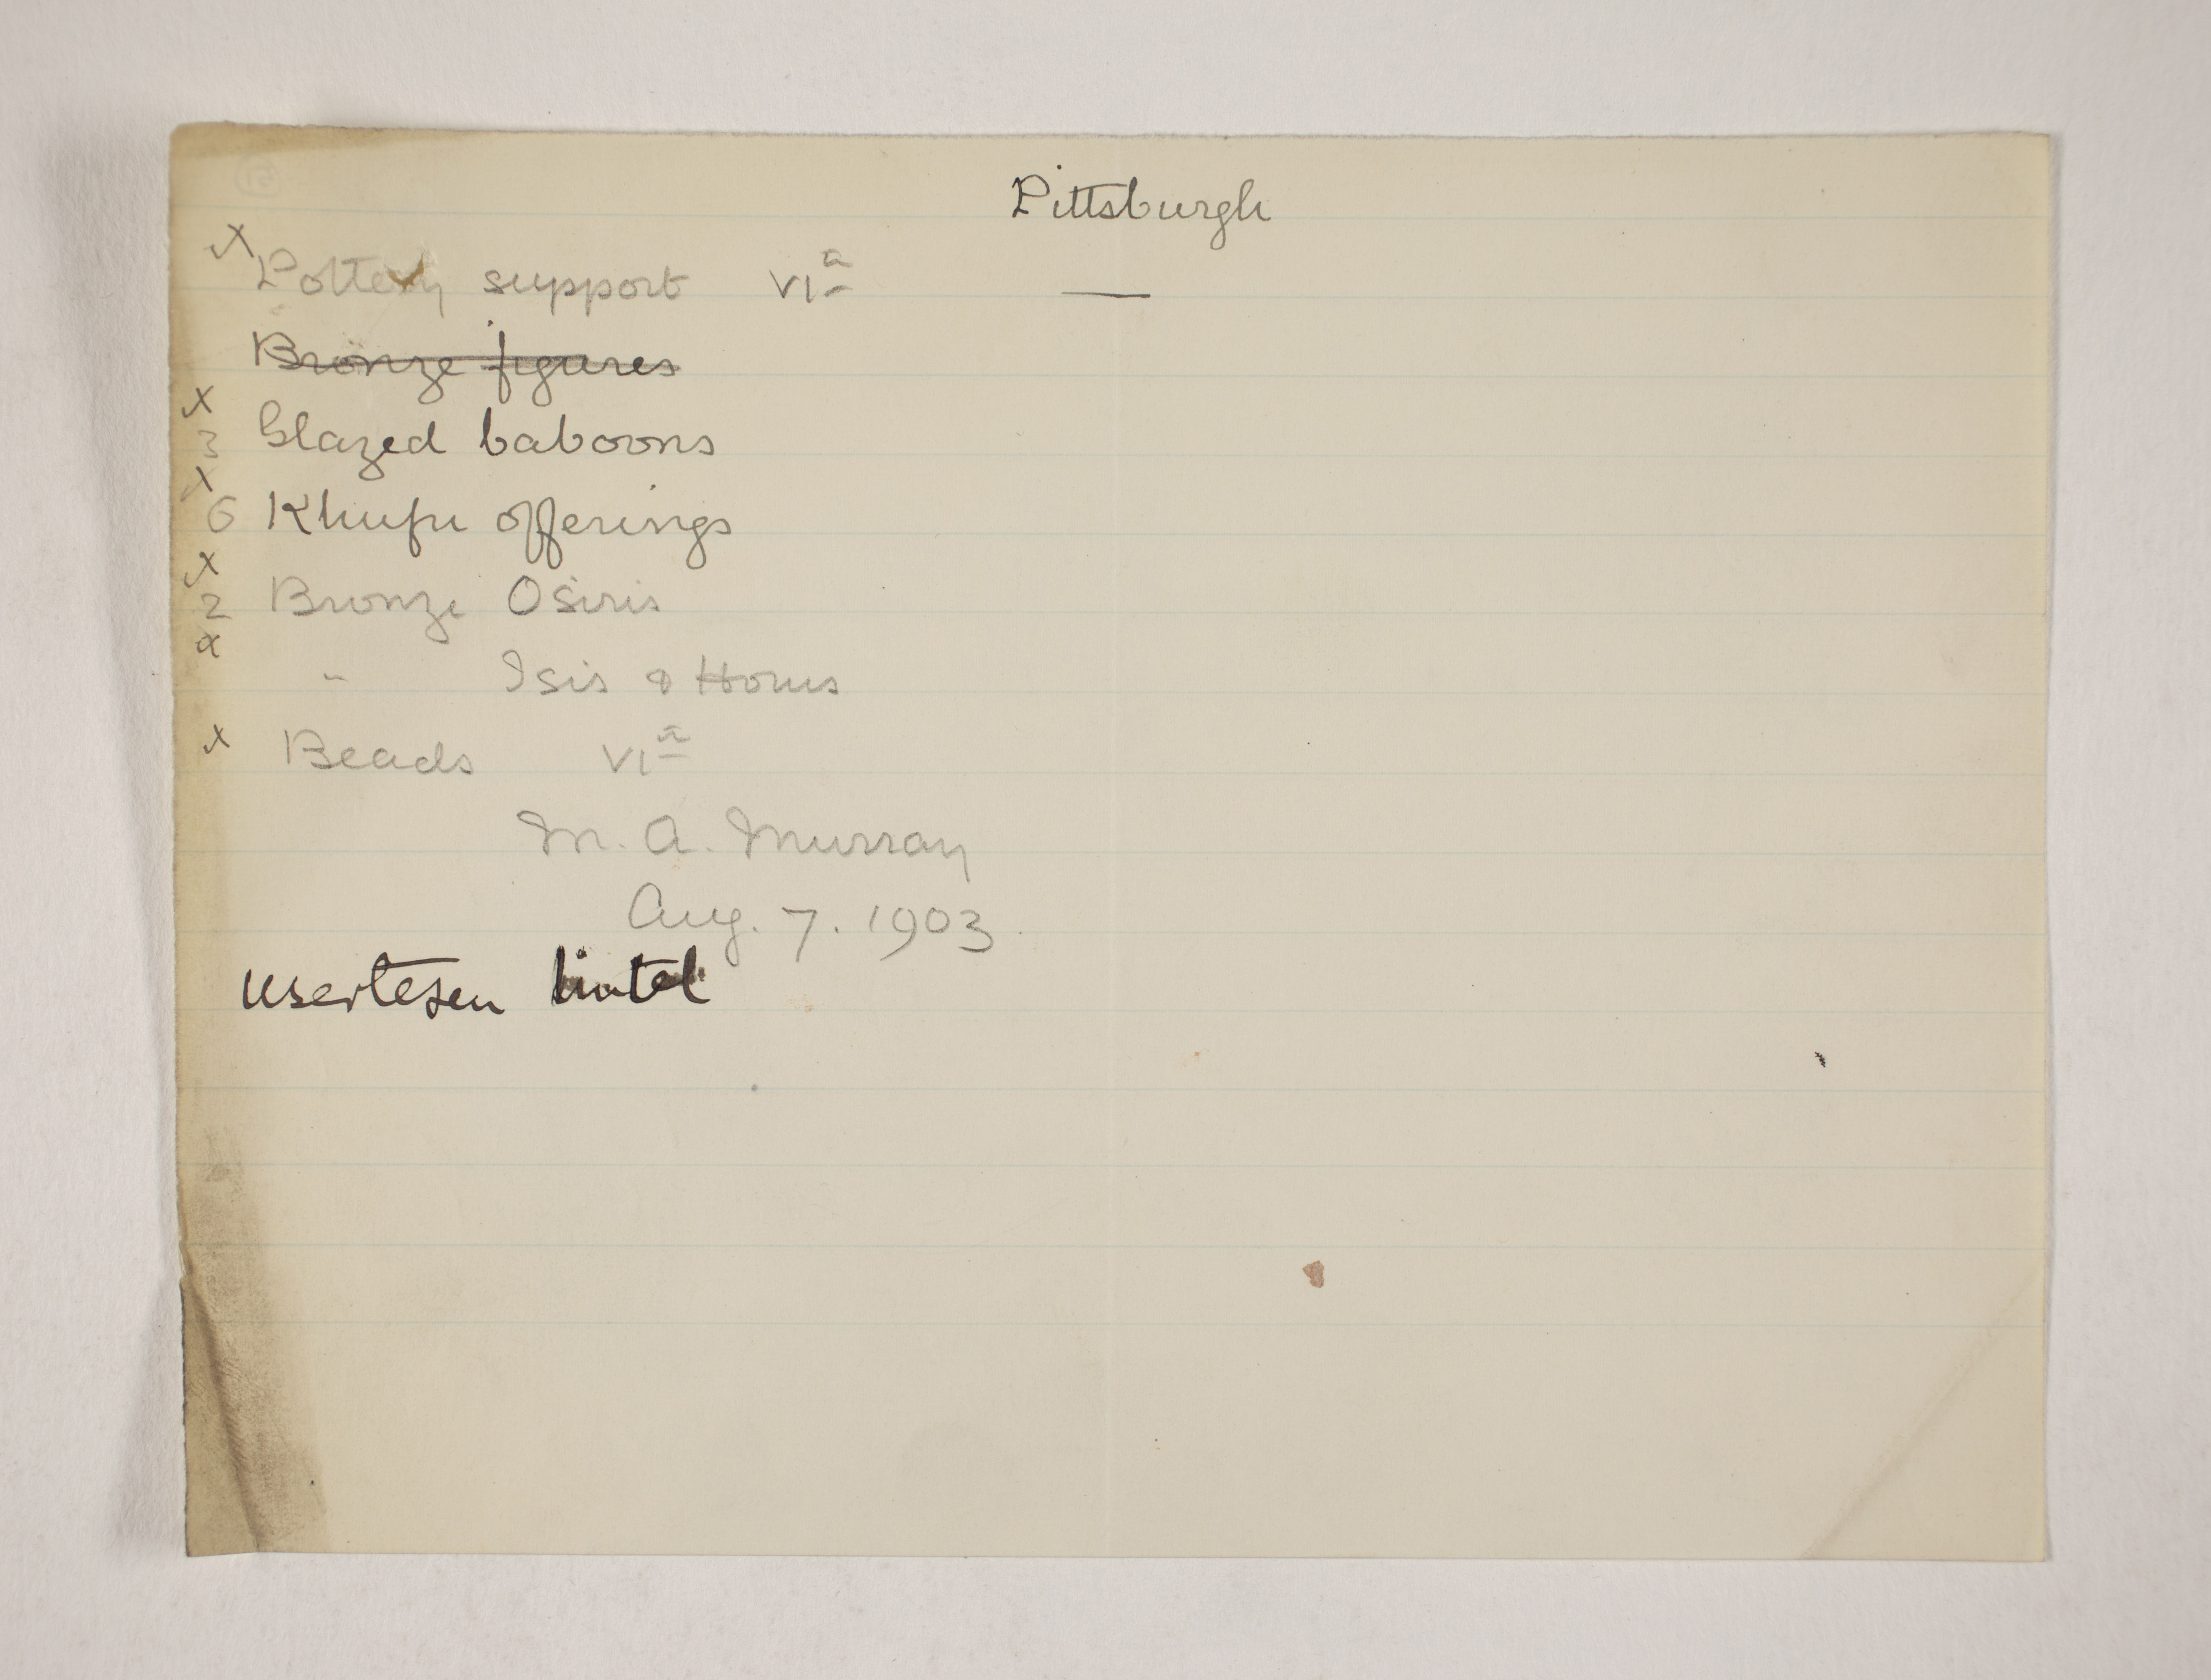 Pittsburgh
x Pottery support VIth
Bronze figures
x
3 Glazed baboons
x
6 Khufu offerings
x
2 Bronze Osiris
x
" Isis & Horus
x Beads VIth
M. A. Murray
Aug. 7. 1903
Usertesen lintel